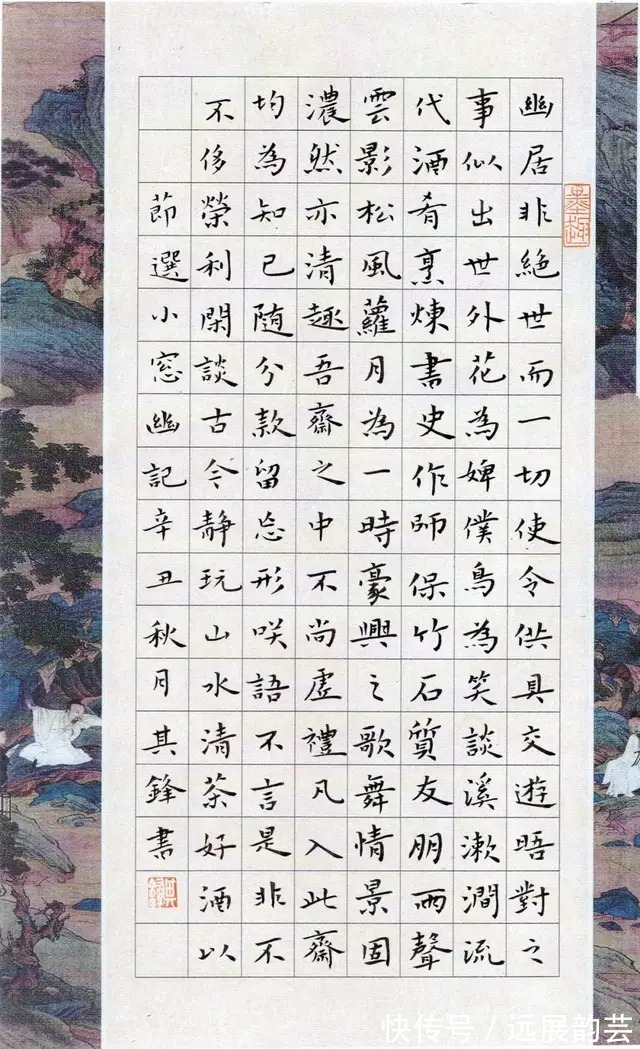 幽居非絕世而一切使令供具交遊晤對之
事似出世外花為婢僕鳥為笑談溪漱澗流
代酒肴烹煉書史作師保竹石質友朋雨聲
雲影松風蘿月為一時豪興之歌舞情景固
濃然亦清趣吾齋之中不尚虛禮凡入此齋
均為知己随分款留忘形咲語不言是非不
不侈榮利閑談古今靜玩山水清茶好酒以
節選小窓幽記辛丑秋月其鋒書
墨趣
快传号 / 远展韵芸